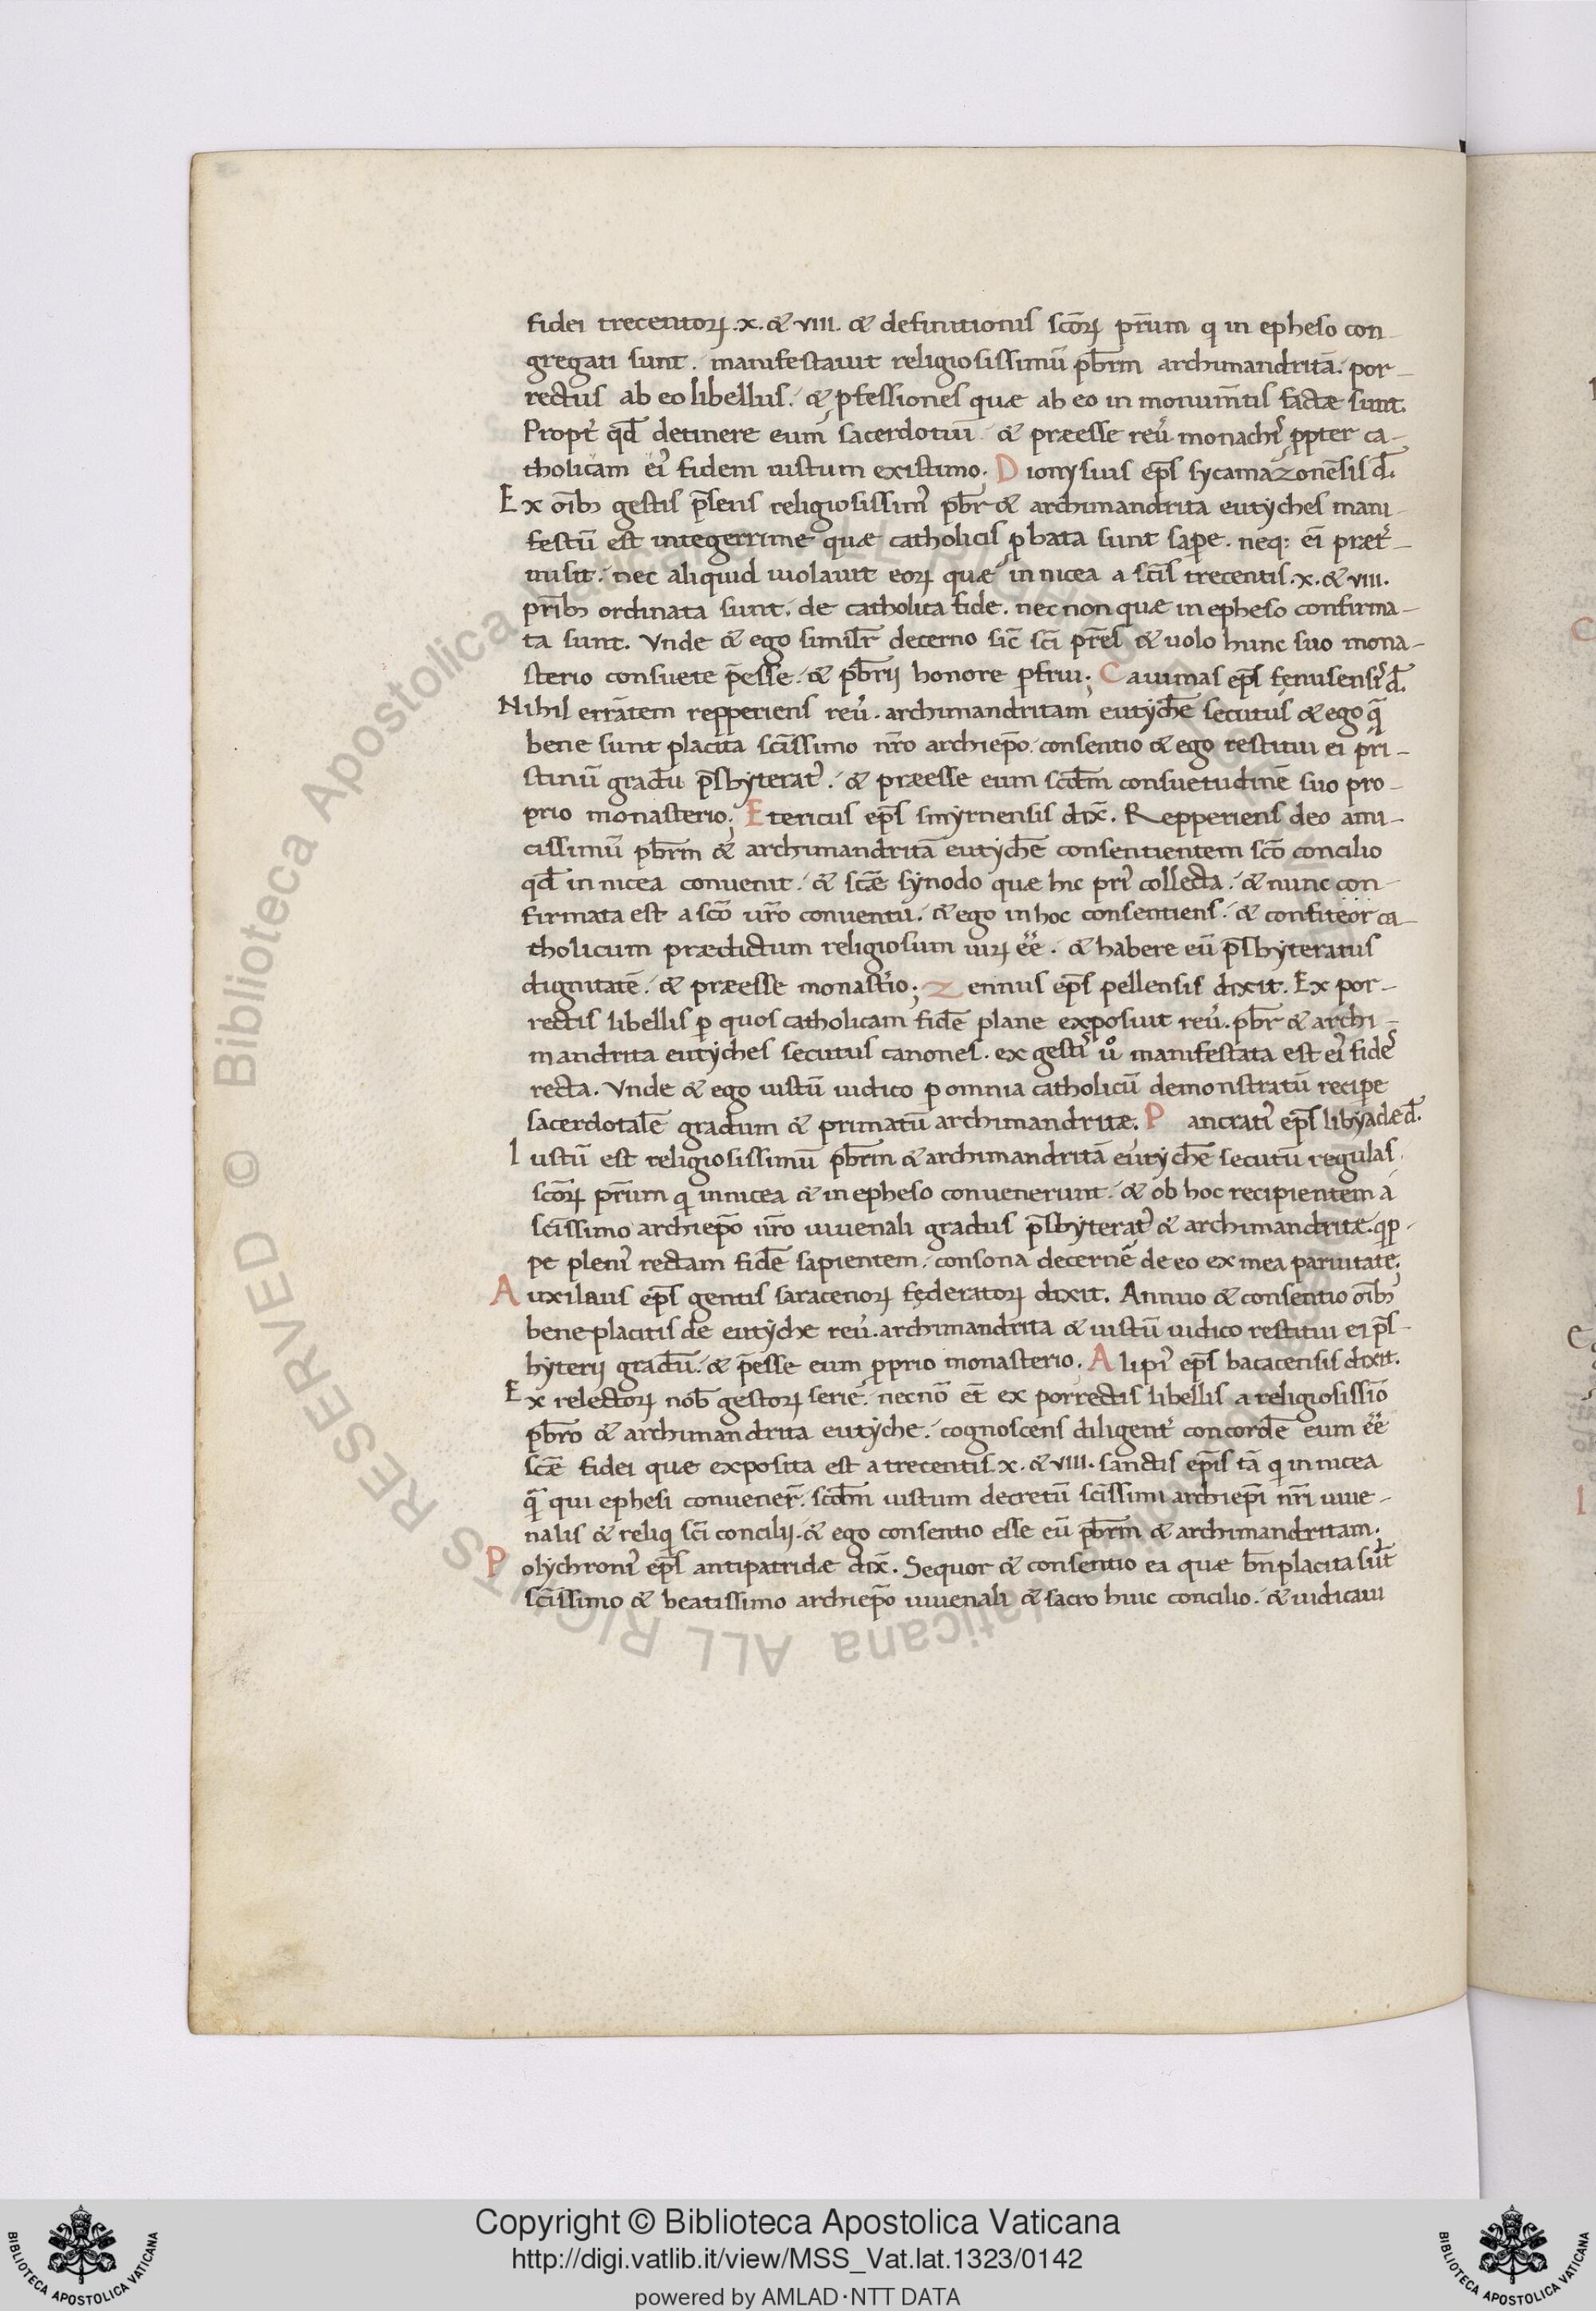 fidei trecentoꝝ .x. & viii. & definitionis scōꝝ pr̄um q in epheso con-
gregati sunt. manifestauit religiosissimū pb̄rm archimandritā. por-
rectus ab eo libellus. & ꝓfessiones quæ ab eo in monum̄tis factæ sunt.
Propt̓ qd̄ detinere eum sacerdotiū & præesse reu̓ monachꝰ ꝓpter ca-
tholicam eiꝰ fidem iustum existimo; Dionysius ep̄s sycamazonēsis d̄.
Ex oīb; gestis p̄sens religiosissimꝰ pb̄r & archimandrita eutyches mani-
festū est integerrime quæ catholicis ꝓbata sunt saꝑe. neq: eī præt̓-
misit. nec aliquid uiolauit eoꝝ quæ in nicea a sc̄is trecentis .x. & viii.
pr̄ib; ordinata sunt. de catholica fide. nec non quæ in epheso confirma-
ta sunt. Vnde & ego similr̄ decerno sic̄ sc̄i pr̄es & uolo hunc suo mona-
sterio consuete p̄esse. & pb̄rij honore ꝑfrui; Cauimas ep̄s fenusensiꝰ d̄.
Nihil errātem repperiens reu̓. archimandritam eutychē secutus & ego q̄
bene sunt placita sc̄issimo nr̄o archiep̄o. consentio & ego restitui ei pri-
stinū gradū p̄sbyteratꝰ. & præesse eum scd̄m consuetudinē suo pro-
prio monasterio; Etericus ep̄s smyrnensis dix̄. Repperiens deo ami-
cissimū pb̄rm & archimandritā eutychē consentientem scō concilio
qd̄ in nicea conuenit. & scǣ synodo quæ hic priꝰ collecta. & nunc con-
firmata est a scō ur̄o conuentu. & ego in hoc consentiens. & confiteor ca-
tholicum prædictum religiosum uiꝝ ēē. & habere eū p̄sbyteratus
dignitatē. & præesse monast̓io; Zennus ep̄s pellensis dixit. Ex por-
rectis libellis ꝑ quos catholicam fidē plane exposuit reu̓. pb̄r & archi-
mandrita eutyches secutus canones. ex gestꝰ uͦ manifestata est eiꝰ fideꝰ
recta. Vnde & ego iustū iudico ꝑ omnia catholicū demonstratū reciꝑe
sacerdotalē gradum & primatū archimandritæ. Pancratiꝰ ep̄s libyadæ d̄.
Iustū est religiosissimū pb̄rm & archimandritā eutychē secutū regulas
scōꝝ pr̄um qi in nicea & in epheso conuenerunt. & ob hoc recipientem a
sc̄issimo archiep̄o nr̄o iuuenali gradus p̄sbyteratꝰ & archimandritæ. qiꝑ-
pe pleniꝰ rectam fidē sapientem. consona decernē de eo ex mea paruitate.
Auxilaus ep̄s gentis saracenoꝝ fęderatoꝝ dixit. Annuo & consentio oīb;
beneplacitis de eutyche reu̓. archimandrita & iustū iudico restitui ei p̄s-
byterij gradū. & p̄esse eum ꝓprio monasterio. Alipiꝰ ep̄s bacacensis dixit.
Ex relectoꝝ nob̄ gestoꝝ serie. necnō et̄ ex porrectis libellis a religiosissīo
pb̄ro & archimandrita eutyche. cognoscens diligent̓ concordē eum ēē
scǣ fidei quæ exposita est a trecentis .x. & viii. sanctis ep̄is tā qi in nicea
q̄ qui ephesi conuener̄. scd̄m iustum decretū sc̄issimi archiep̄i nr̄i iuue-
nalis & reliqi sc̄i concilij. & ego consentio esse eū pb̄rm & archimandritam.
Polychroniꝰ ep̄s antipatridæ dix̄. Sequor & consentio ea quæ bn̄placita sūt
sc̄issimo & beatissimo archiep̄o iuuenali & sacro huic concilio. & iudicaui
Biblioteca Apostolica Vaticana ALL RIGHTS RESERVED ©
Copyright © Biblioteca Apostolica Vaticana
http://digi.vatlib.it/view/MSS_Vat.lat.1323/0142
powered by AMLAD·NTT DATA
BIBLIOTECA APOSTOLICA VATICANA
BIBLIOTECA APOSTOLICA VATICANA